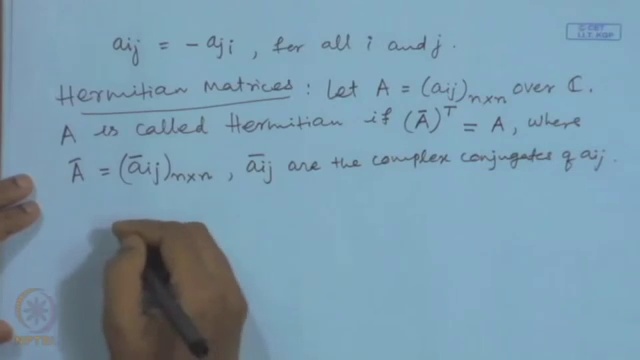 aij = - aji , for all i and j.
Hermitian Matrices : Let A = (aij)n×n over ℂ.
A is called Hermitian if (Ā)ᵀ = A, where
Ā = (āij)n×n , āij are the complex conjugates of aij.
I.I.T. KGP
NPTEL